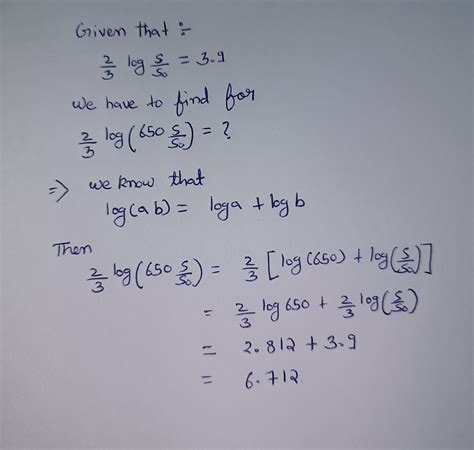 Given that :-
2/3 log S/S₀ = 3.9
we have to find for
2/3 log(650 S/S₀) = ?
=> we know that
log(ab) = loga + log b
Then
2/3 log(650 S/S₀) = 2/3 [log(650) + log(S/S₀)]
= 2/3 log 650 + 2/3 log(S/S₀)
= 2.812 + 3.9
= 6.712